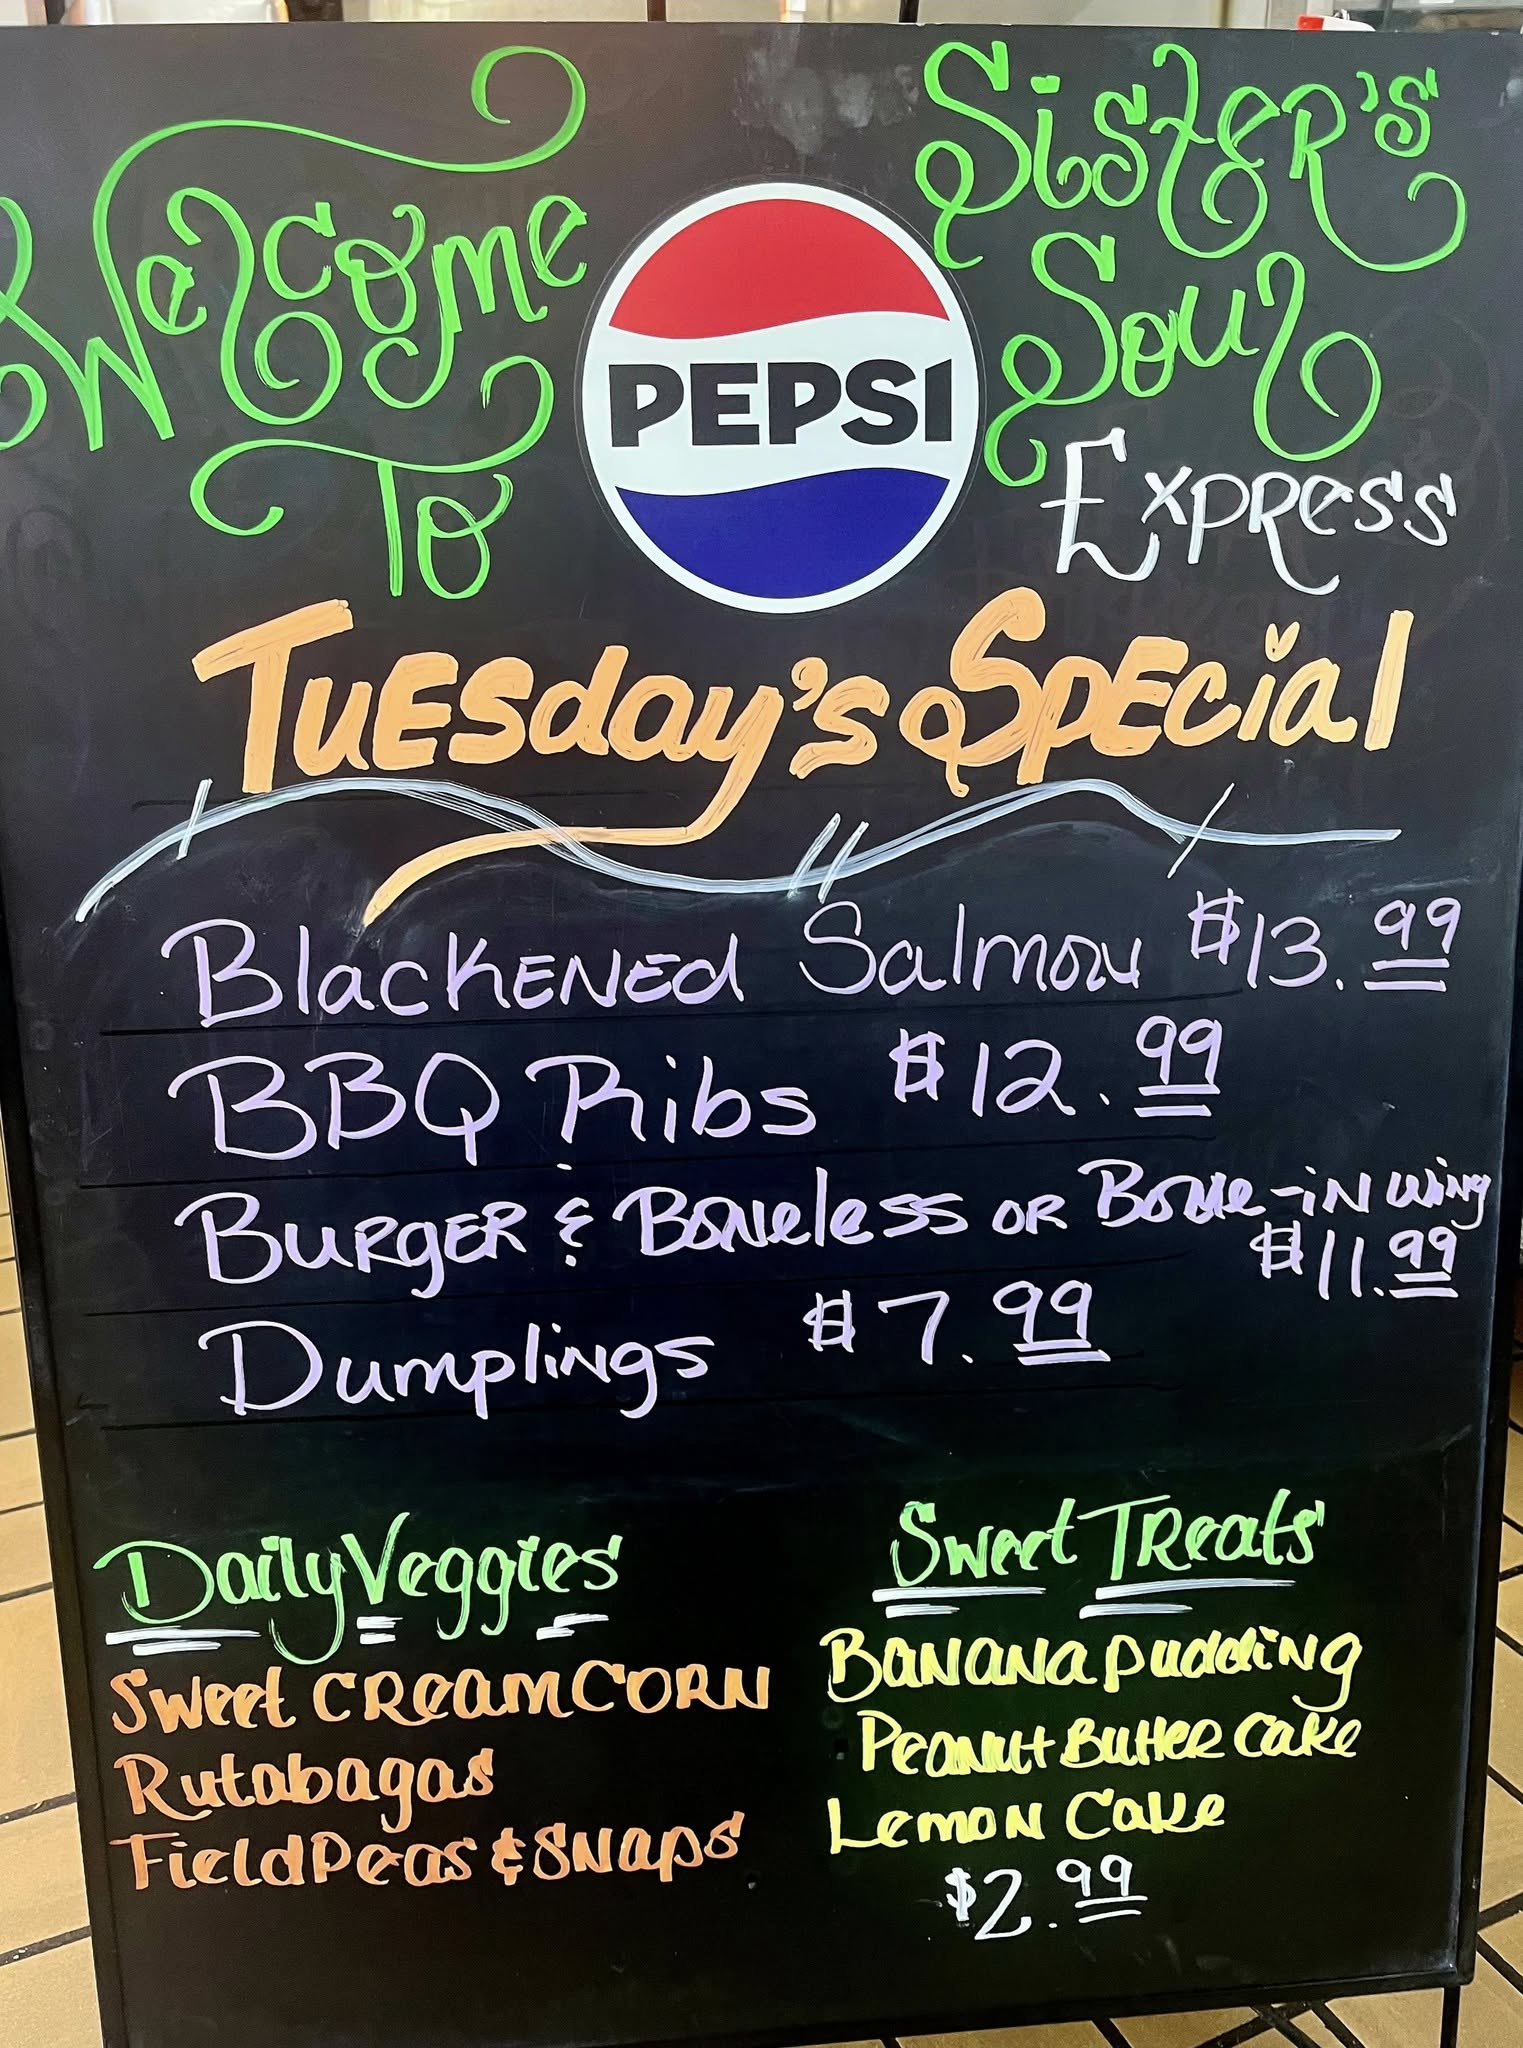 Welcome
To
PEPSI
Sister's
Soul
Express
Tuesday's Special
Blackened Salmon $13.99
BBQ Ribs $12.99
Burger & Boneless or Bone-in Wing
$11.99
Dumplings $7.99
Daily Veggies
Sweet Cream Corn
Rutabagas
Field Peas & Snaps
Sweet Treats
Banana pudding
Peanut Butter Cake
Lemon Cake
$2.99